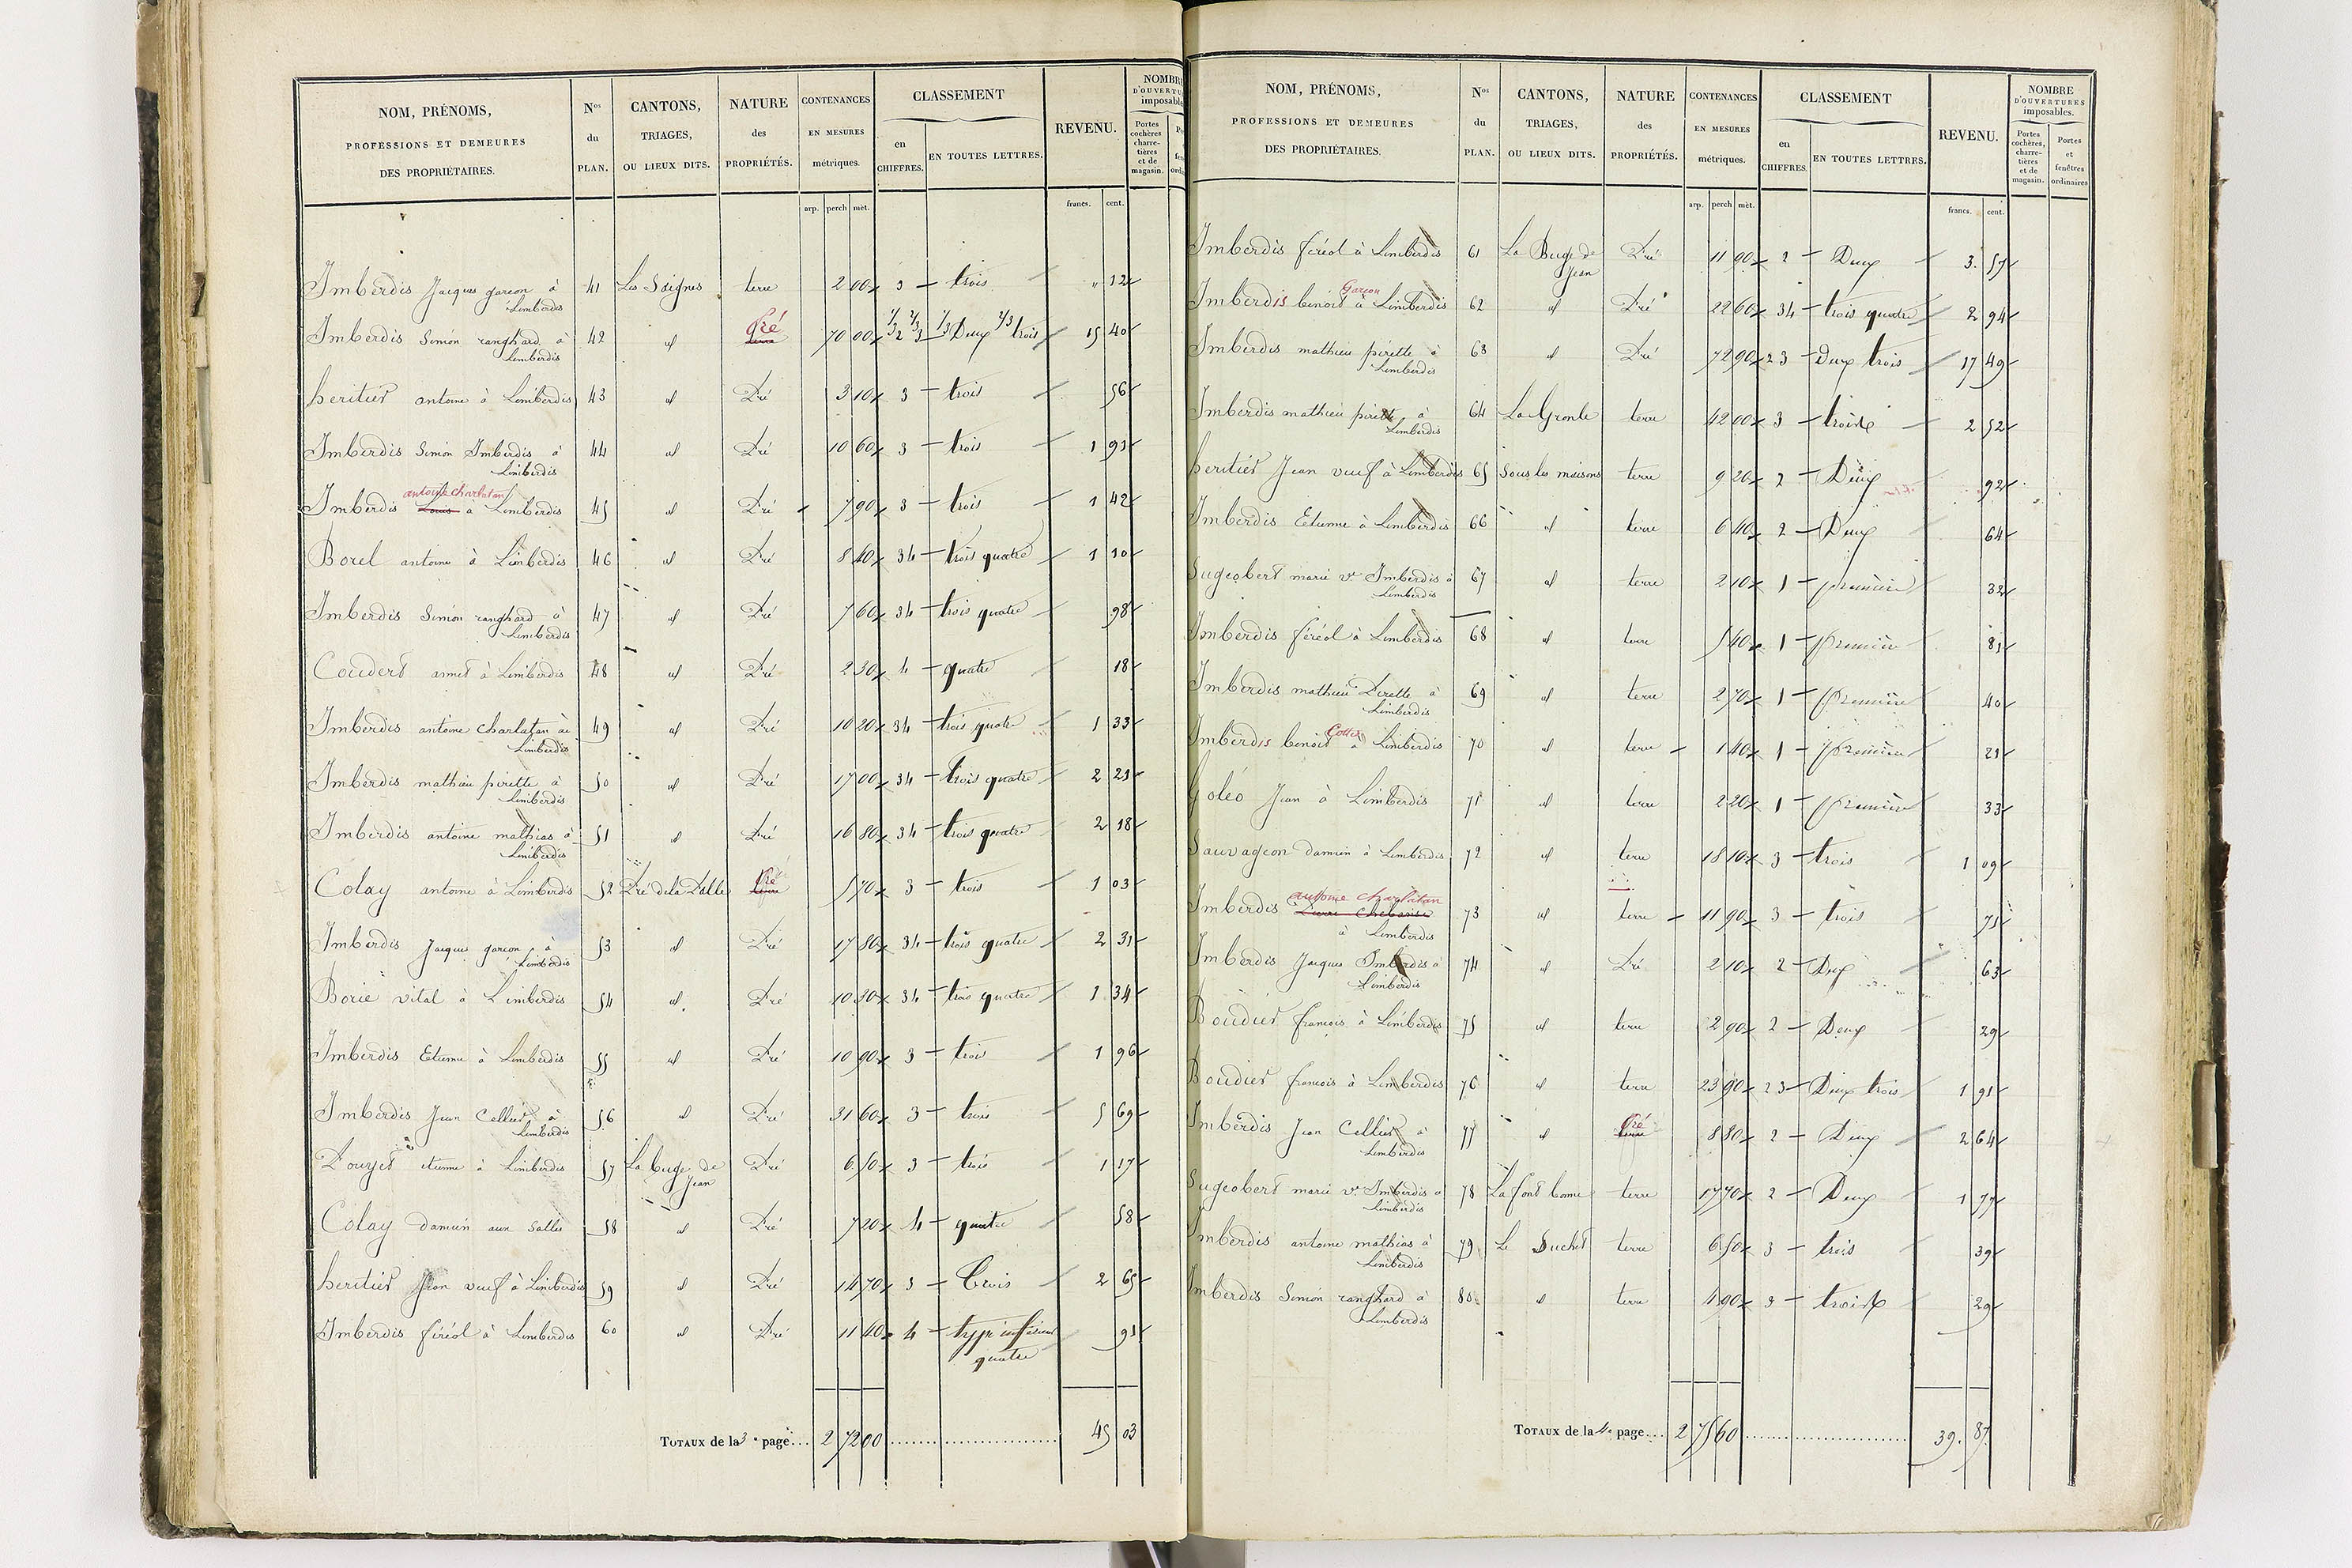 NOM, PRÉNOMS,
PROFESSIONS ET DEMEURES
DES PROPRIÉTAIRES.
Nos du PLAN.
CANTONS, TRIAGES, OU LIEUX DITS.
NATURE des PROPRIÉTÉS.
CONTENANCES EN MESURES métriques.
CLASSEMENT
en CHIFFRES.
EN TOUTES LETTRES.
REVENU.
NOMBRE D'OUVERTU imposable
Portes cochères charretières et de magasin.
arp. perch mèt. francs. cent.
Imberdis Jacques garcon à Limberdis 41 Les Saignes terre 2 00 3 trois " 12
Imberdis Simon ranghard à Limberdis 42 id Pré 70 00 1/3 2 2/3 3 1/3 Deux 2/3 trois 15 40
heritier antoine à Limberdis 43 id Pré 3 10 3 trois 56
Imberdis Simon Imberdis à Limberdis 44 id Pré 10 60 3 trois 1 91
antoine charlatan
Imberdis Louis à Limberdis 45 id Pré 7 90 3 trois 1 42
Borel antoine à Limberdis 46 id Pré 8 40 34 trois quatre 1 10
Imberdis Simon ranghard à Limberdis 47 id Pré 7 60 34 trois quatre 98
Coudert annet à Limberdis 48 id Pré 2 30 4 quatre 18
Imberdis antoine charlatan à Limberdis 49 id Pré 10 20 34 trois quatre 1 33
Imberdis mathieu pirette à Limberdis 50 id Pré 17 00 34 trois quatre 2 21
Imberdis antoine mathias à Limberdis 51 id Pré 16 80 34 trois quatre 2 18
Colay antoine à Limberdis 52 Pré de la Dalle Pré 5 70 3 trois 1 03
Imberdis Jacques garcon à Limberdis 53 id Pré 17 80 34 trois quatre 2 31
Borie vital à Limberdis 54 id Pré 10 30 34 trois quatre 1 34
Imberdis Etienne à Limberdis 55 id Pré 10 90 3 trois 1 96
Imberdis Jean Cellier à Limberdis 56 id Pré 31 60 3 trois 5 69
Douzet etienne à Limberdis 57 La buge de Jean Pré 6 50 3 trois 1 17
Colay damien aux Salles 58 id Pré 7 20 4 quatre 58
heritier Jean veuf à Limberdis 59 id Pré 14 70 3 Trois 2 65
Imberdis féréol à Limberdis 60 id Pré 11 40 4 type inférieur quatre 91
TOTAUX de la 3e page... 2 72 00 45 03
NOM, PRÉNOMS,
PROFESSIONS ET DEMEURES
DES PROPRIÉTAIRES.
Nos du PLAN.
CANTONS, TRIAGES, OU LIEUX DITS.
NATURE des PROPRIÉTÉS.
CONTENANCES EN MESURES métriques.
CLASSEMENT
en CHIFFRES.
EN TOUTES LETTRES.
REVENU.
NOMBRE D'OUVERTURES imposables.
Portes cochères, charretières et de magasin.
Portes et fenêtres ordinaires
arp. perch mèt. francs. cent.
Imberdis féréol à Limberdis 61 La Buge de Jean Pré 11 90 2 Deux 3 57
Garcon
Imberdis benoit à Limberdis 62 id Pré 22 60 34 trois quatre 2 94
Imberdis mathieu pirette à Limberdis 63 id Pré 72 90 23 Deux trois 17 49
Imberdis mathieu pirette à Limberdis 64 La Gronle terre 42 00 3 trois 2 52
heritier Jean veuf à Limberdis 65 Sous les maisons terre 9 20 2 Deux 92
Imberdis Etienne à Limberdis 66 id terre 6 40 2 Deux 64
Sugeobert marie ve Imberdis à Limberdis 67 id terre 2 10 1 premiere 32
Imberdis féréol à Limberdis 68 id terre 5 40 1 premiere 81
Imberdis mathieu Pirette à Limberdis 69 id terre 2 70 1 premiere 40
Imberdis benoit à Limberdis 70 id terre 1 40 1 premiere 21
Goléo Jean à Limberdis 71 id terre 2 20 1 premiere 33
Sauvageon damien à Limberdis 72 id terre 18 10 3 trois 1 09
antoine charlatan
Imberdis à Limberdis 73 id terre 11 90 3 trois 71
Imberdis Jacques Imberdis à Limberdis 74 id Pré 2 10 2 Deux 63
Boudier francois à Limberdis 75 id terre 2 90 2 Deux 29
Boudier francois à Limberdis 76 id terre 23 90 23 Deux trois 1 91
Imberdis Jean Cellier à Limberdis 77 id Pré 8 80 2 Deux 2 64
Sugeobert marie ve Imberdis à Limberdis 78 La font bonne terre 17 70 2 Deux 1 77
Imberdis antoine mathias à Limberdis 79 Le Suchet terre 6 50 3 trois 39
Imberdis Simon ranghard à Limberdis 80 id terre 4 90 3 trois 29
TOTAUX de la 4e page... 2 75 60 39. 87